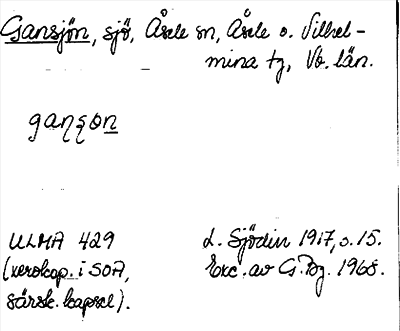 Gansjön, sjö, Åsele sn, Åsele o. Vilhel-
mina tg, Vb. län.
gaŋʂon
ULMA 429
(xerokop. i SOA,
särsk. kapsel).
L. Sjödin 1917, s. 15.
Exc. av G. Bg. 1968.